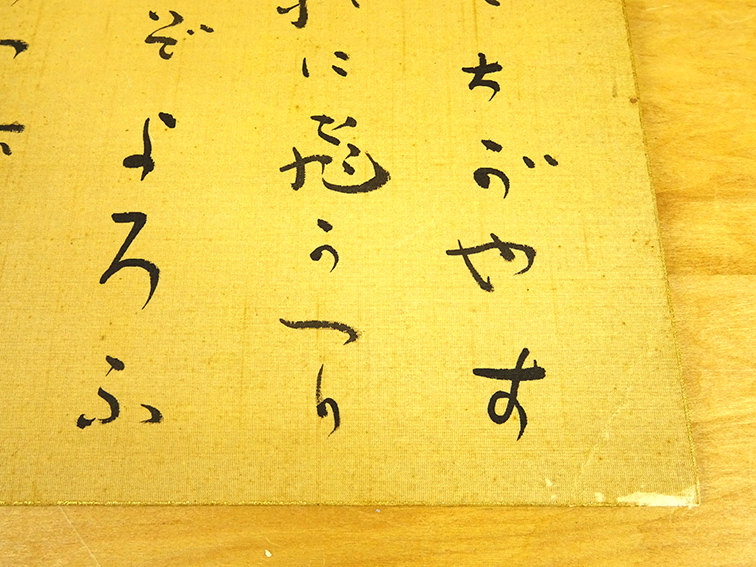 ちがやす
に飛うつり
ぞよろふ